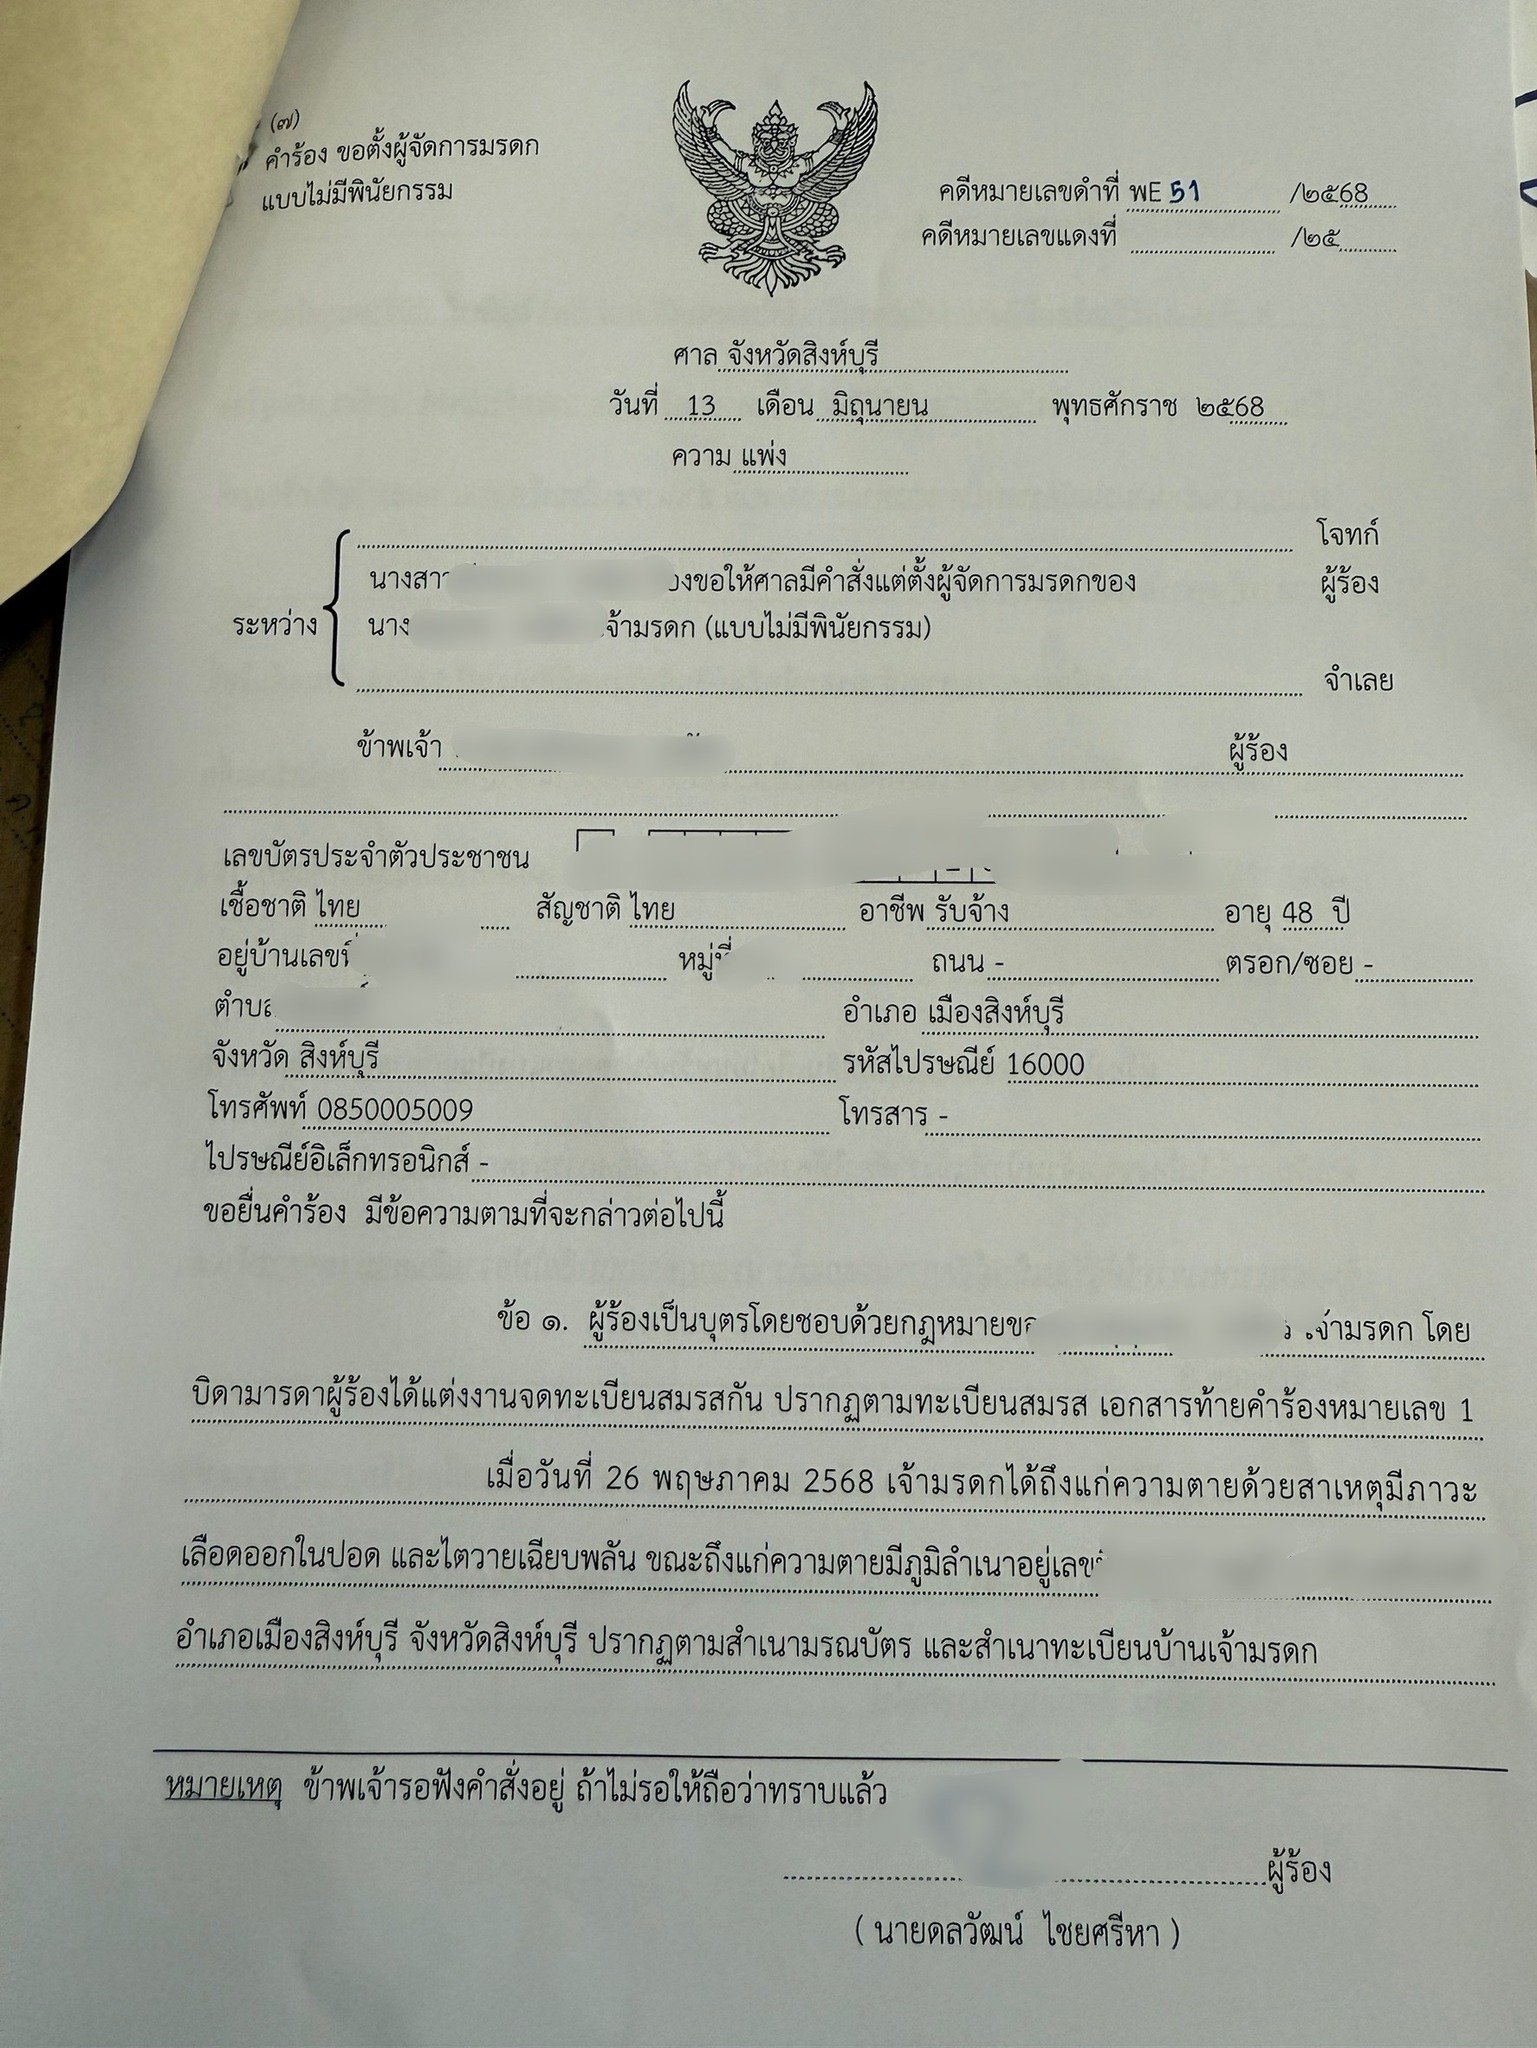 (๗)
คำร้อง ขอตั้งผู้จัดการมรดก
แบบไม่มีพินัยกรรม
คดีหมายเลขดำที่ พE 51 /๒๕68
คดีหมายเลขแดงที่ /๒๕
ศาล จังหวัดสิงห์บุรี
วันที่ 13 เดือน มิถุนายน พุทธศักราช ๒๕68
ความ แพ่ง
โจทก์
ขอให้ศาลมีคำสั่งแต่งตั้งผู้จัดการมรดกของ ผู้ร้อง
ระหว่าง นาง มรดก (แบบไม่มีพินัยกรรม)
จำเลย
ข้าพเจ้า ผู้ร้อง
เลขบัตรประจำตัวประชาชน
เชื้อชาติ ไทย สัญชาติ ไทย อาชีพ รับจ้าง อายุ 48 ปี
อยู่บ้านเลขที่ หมู่ที่ ถนน - ตรอก/ซอย -
ตำบล อำเภอ เมืองสิงห์บุรี
จังหวัด สิงห์บุรี รหัสไปรษณีย์ 16000
โทรศัพท์ 0850005009 โทรสาร -
ไปรษณีย์อิเล็กทรอนิกส์ -
ขอยื่นคำร้อง มีข้อความตามที่จะกล่าวต่อไปนี้
ข้อ ๑. ผู้ร้องเป็นบุตรโดยชอบด้วยกฎหมาย เจ้ามรดก โดย
บิดามารดาผู้ร้องได้แต่งงานจดทะเบียนสมรสกัน ปรากฏตามทะเบียนสมรส เอกสารท้ายคำร้องหมายเลข 1
เมื่อวันที่ 26 พฤษภาคม 2568 เจ้ามรดกได้ถึงแก่ความตายด้วยสาเหตุมีภาวะ
เลือดออกในปอด และไตวายเฉียบพลัน ขณะถึงแก่ความตายมีภูมิลำเนาอยู่เลขที่
อำเภอเมืองสิงห์บุรี จังหวัดสิงห์บุรี ปรากฏตามสำเนามรณบัตร และสำเนาทะเบียนบ้านเจ้ามรดก
หมายเหตุ ข้าพเจ้ารอฟังคำสั่งอยู่ ถ้าไม่รอให้ถือว่าทราบแล้ว
ผู้ร้อง
( นายดลวัฒน์ ไชยศรีหา )